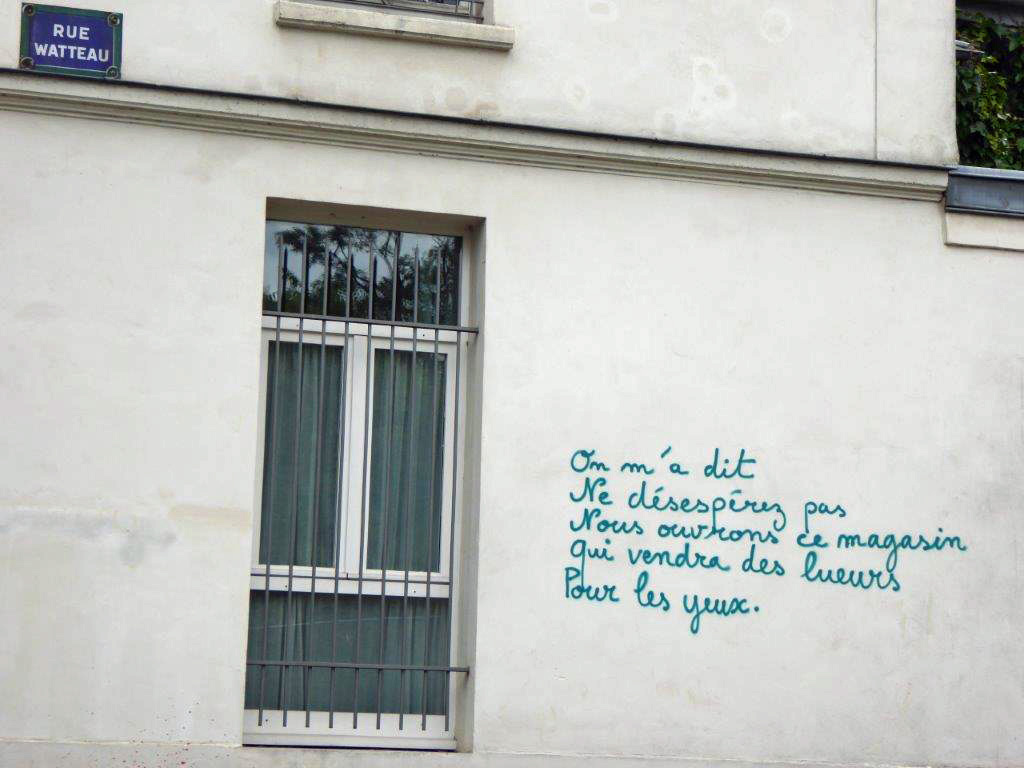 RUE
WATTEAU
On m'a dit
Ne désespérez pas
Nous ouvrons ce magasin
Qui vendra des lueurs
Pour les yeux.